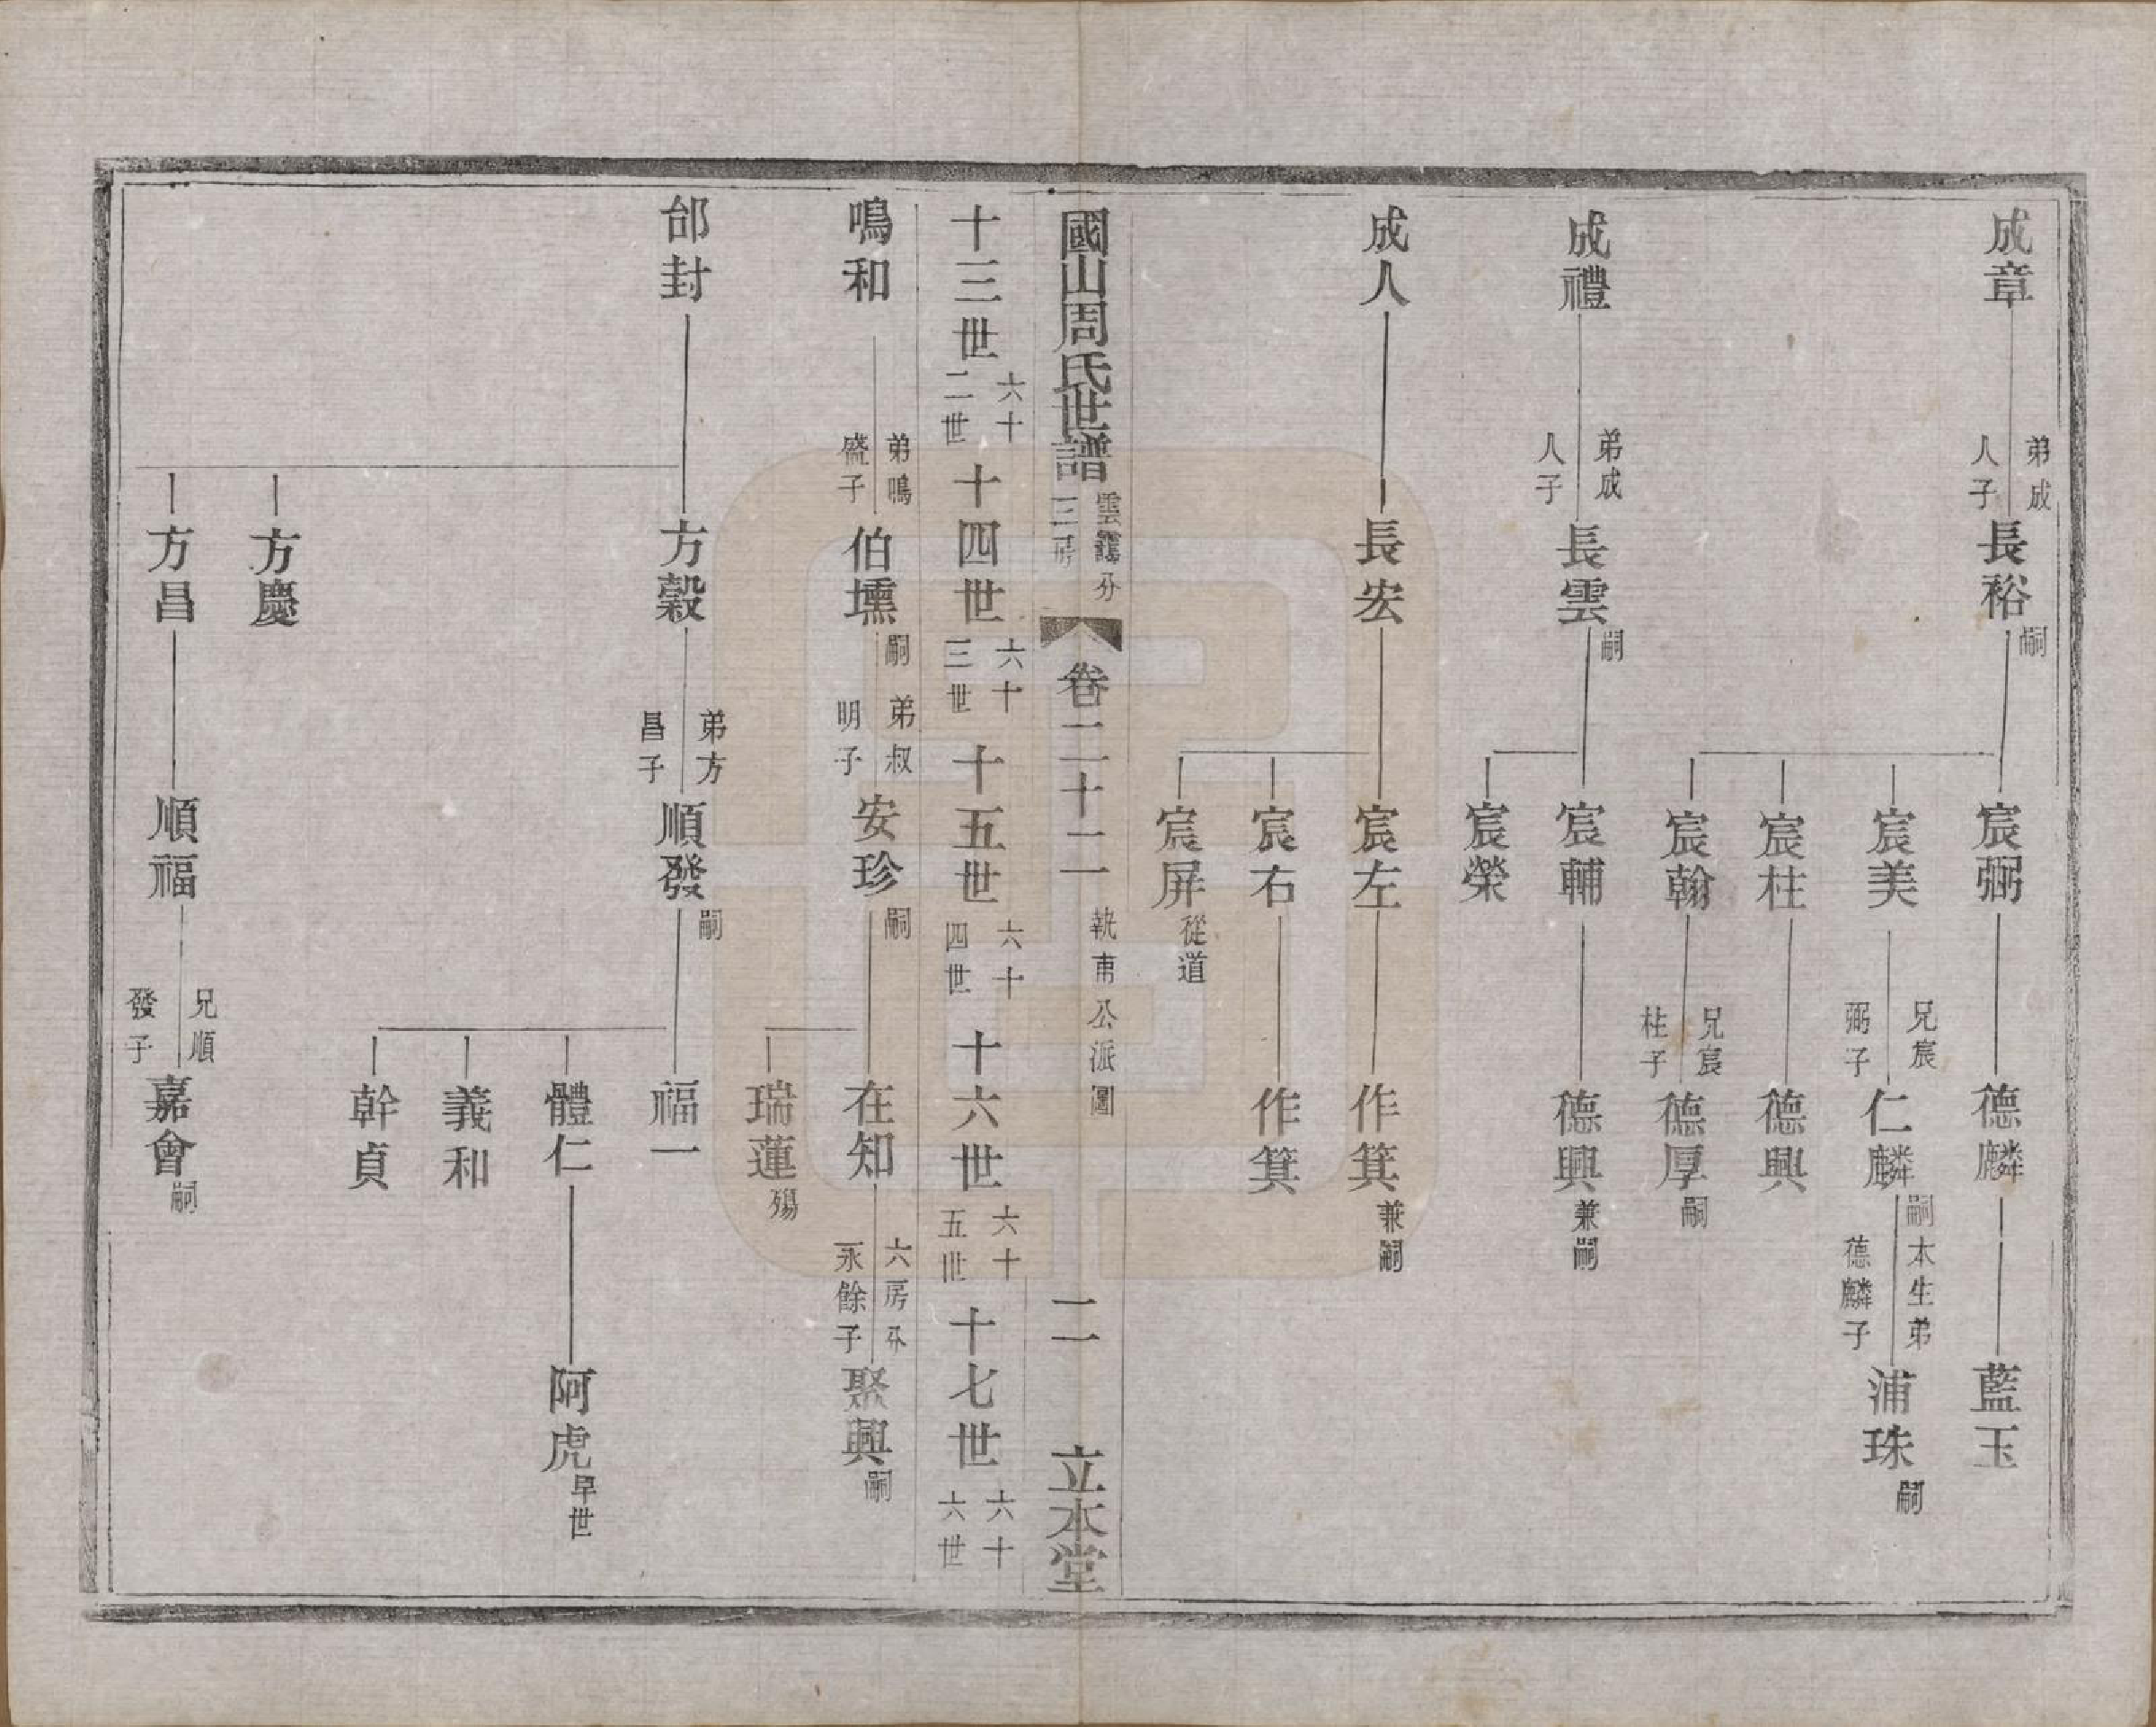 成章
弟成
人子
長裕
嗣
宸弼
德麟
藍玉
宸美
兄宸
弼子
仁麟
嗣本生弟
德麟子
浦珠
嗣
宸柱
德興
宸翰
兄宸
柱子
德厚
嗣
成禮
弟成
人子
長雲
嗣
宸輔
德興
兼嗣
宸榮
成人
長宏
宸左
作箕
兼嗣
宸右
作箕
宸屏
從道
國山周氏世譜
雲靄分
三房
卷二十二
執甫公派圖
二
立本堂
十三世
六十
二世
十四世
六十
三世
十五世
六十
四世
十六世
六十
五世
十七世
六十
六世
鳴和
弟鳴
盛子
伯壎
嗣
弟叔
明子
安珍
嗣
在知
六房分
永餘子
聚興
嗣
瑞蓮
殤
邰封
方穀
弟方
昌子
順發
嗣
福一
體仁
阿虎
早世
義和
幹貞
方慶
方昌
順福
兄順
發子
嘉會
嗣